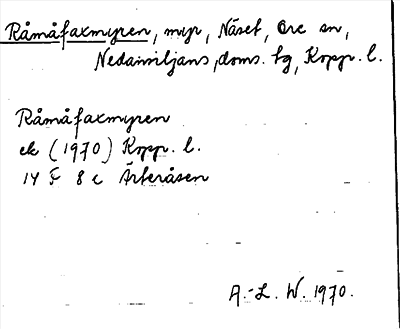 Råmåfaxmyren, myr, Näset, Ore sn,
Nedansiljans doms. tg, Kopp. l.
Råmåfaxmyren
ek (1970) Kopp. l.
14 F 8 c Ärteråsen
A.-L. W. 1970.